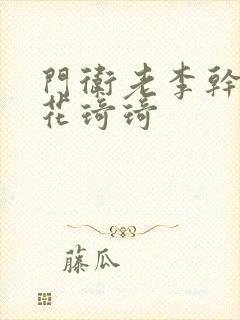 門衛老李幹
花琦琦
藤瓜